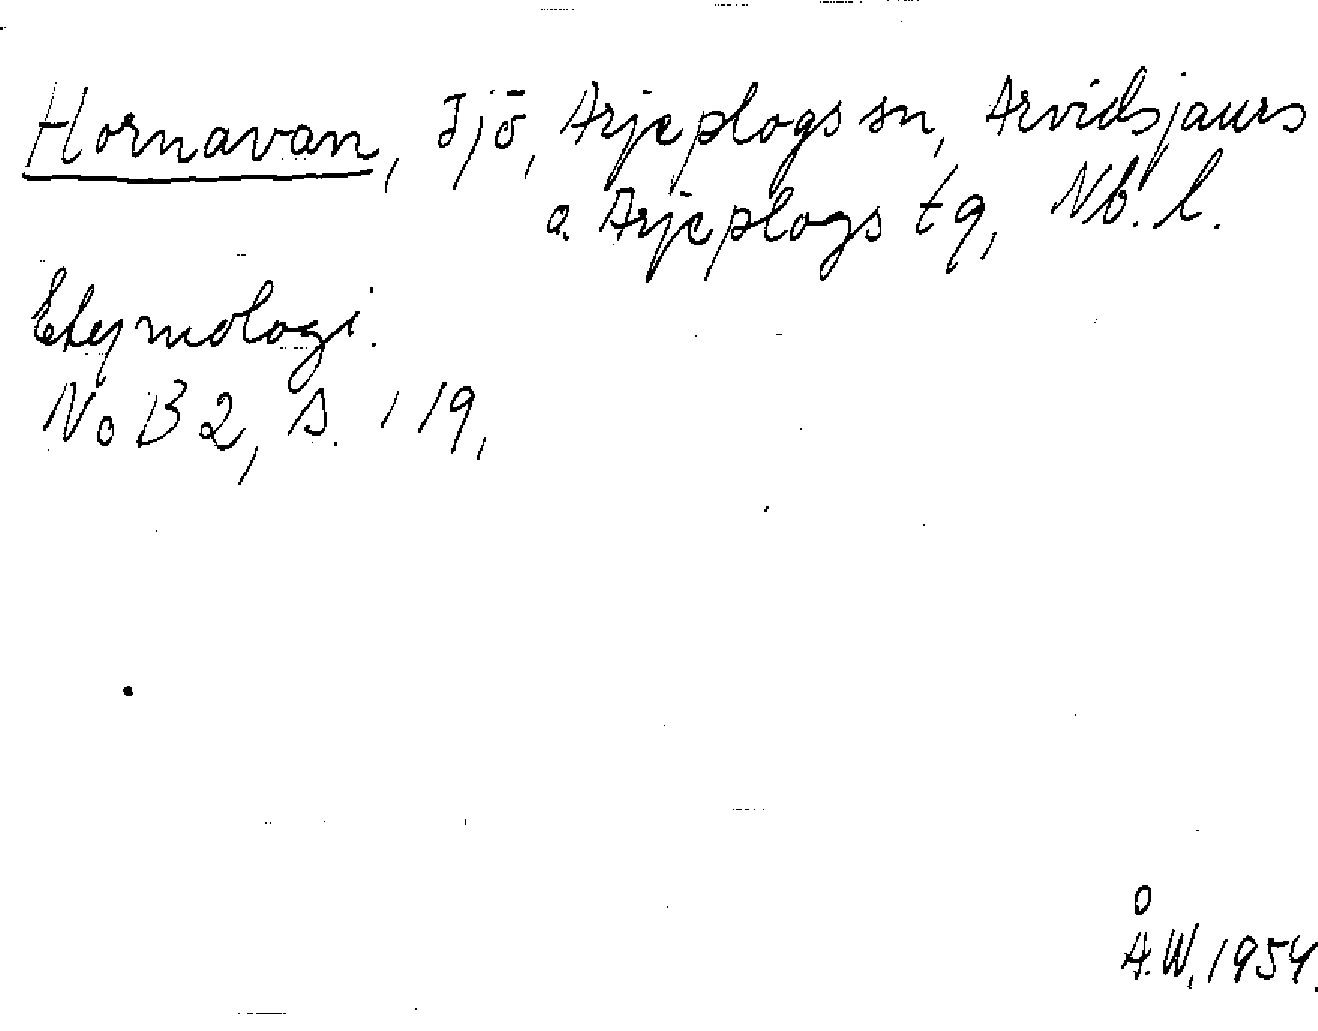 Hornavan, sjö, Arjeplogs sn, Arvidsjaurs
o. Arjeplogs tg, Nb. l.
Etymologi.
NoB 2, s. 119,
Å.W. 1954.